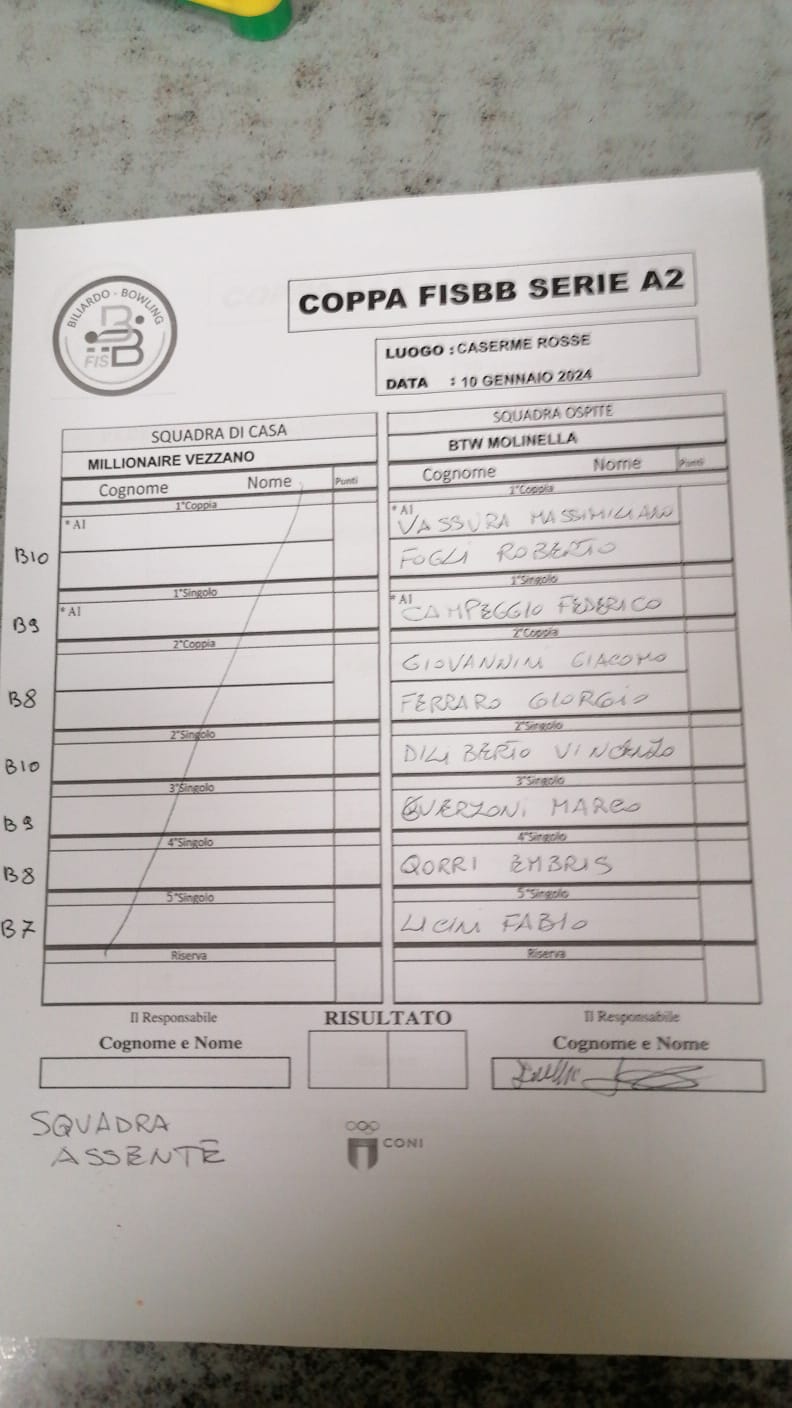 BILIARDO - BOWLING
FISBB
COPPA FISBB SERIE A2
LUOGO : CASERME ROSSE
DATA : 10 GENNAIO 2024
SQUADRA DI CASA
MILLIONAIRE VEZZANO
Cognome Nome Punti
1°Coppia
* A1
B10
1°Singolo
* A1
B9
2°Coppia
B8
2°Singolo
B10
3°Singolo
B9
4°Singolo
B8
5°Singolo
B7
Riserva
Il Responsabile
Cognome e Nome
SQUADRA OSPITE
BTW MOLINELLA
Cognome Nome Punti
1°Coppia
* A1
VASSURA MASSIMILIANO
FOGLI ROBERTO
1°Singolo
* A1
CAMPEGGIO FEDERICO
2°Coppia
GIOVANNINI GIACOMO
FERRARO GIORGIO
2°Singolo
DILIBERTO VINCENZO
3°Singolo
GUERZONI MARCO
4°Singolo
QORRI EMBRIS
5°Singolo
LICINI FABIO
Riserva
Il Responsabile
Cognome e Nome
RISULTATO
SQUADRA
ASSENTE
CONI